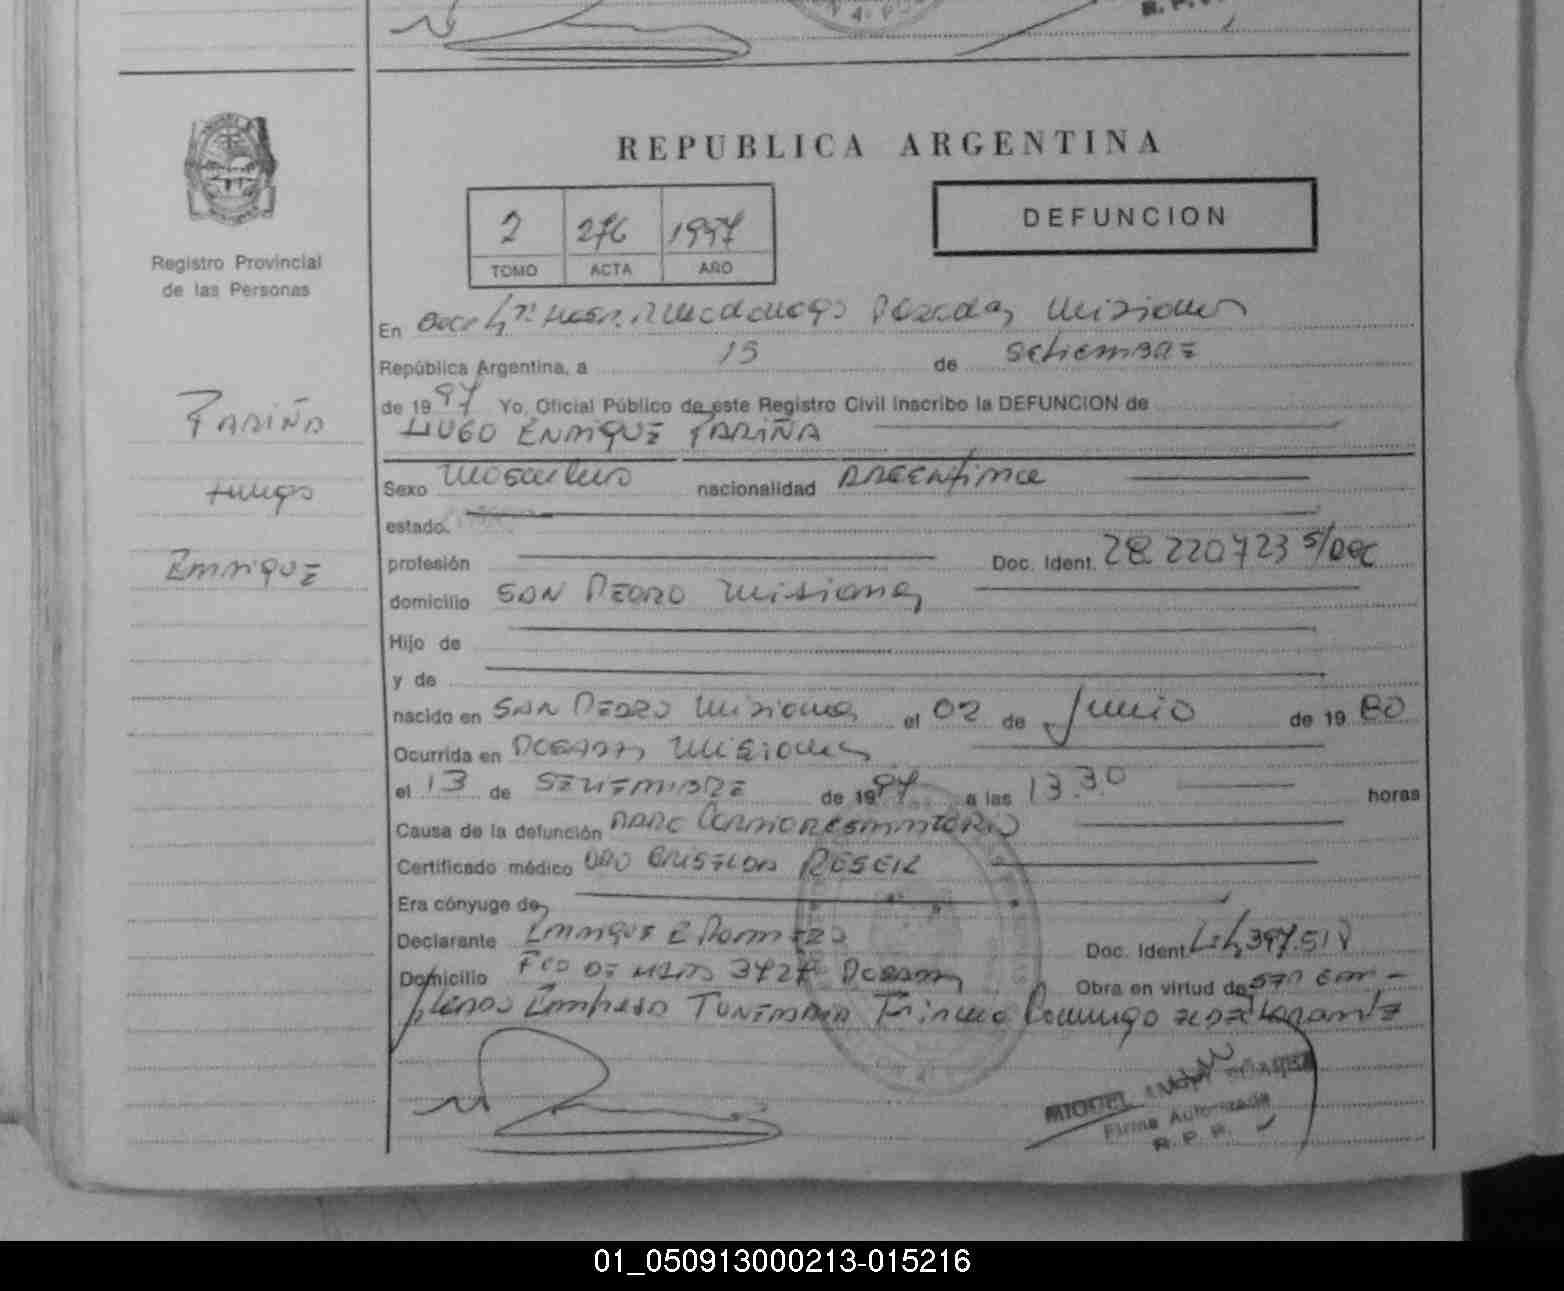 R. P. P.
REPUBLICA ARGENTINA
2 276 1997
TOMO ACTA AÑO
DEFUNCION
Registro Provincial
de las Personas
En Posadas, Misiones
República Argentina, a 15 de Setiembre
de 1997 Yo, Oficial Público de este Registro Civil Inscribo la DEFUNCION de
HUGO ENRIQUE FARIÑA
FARIÑA
Hugo
ENRIQUE
Sexo Masculino nacionalidad ARGENTINA
estado
profesión Doc. Ident. 28 220723 S/DOC
domicilio SAN PEDRO Misiones
Hijo de
y de
nacido en SAN PEDRO Misiones el 02 de Junio de 1980
Ocurrida en POSADAS MISIONES
el 13 de SETIEMBRE de 1997 a las 13.30 horas
Causa de la defunción PARO CARDIORESPIRATORIO
Certificado médico GRISELDA
Era cónyuge de
Declarante ENRIQUE E Doc. Ident. 397.518
Domicilio 3727 POSADAS Obra en virtud de
Empresa Domingo
Firma Autorizada
R. P. P.
01_050913000213-015216